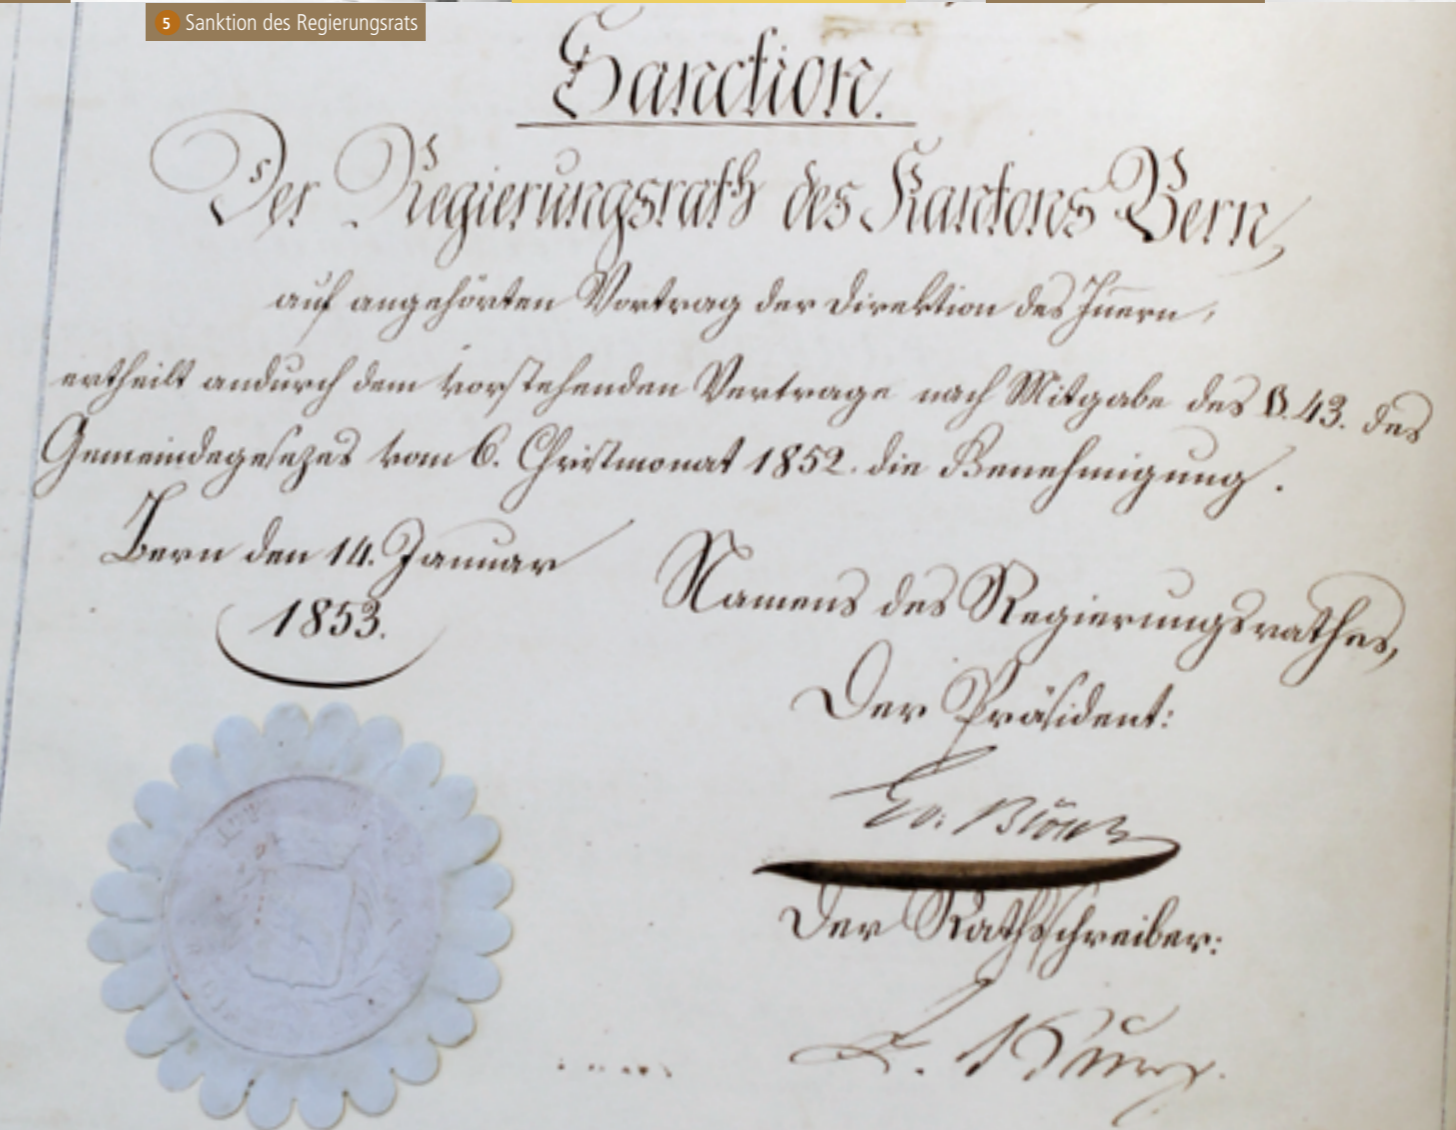 5 Sanktion des Regierungsrats
Sanction.
Der Regierungsrath des Kantons Bern,
auf angehörten Vortrag der Direktion des Innern,
ertheilt andurch dem vorstehenden Vertrage nach Mitgabe des §. 43. des
Gemeindegesezes vom 6. Christmonat 1852. die Genehmigung.
Bern den 14. Januar
1853.
Namens des Regierungsrathes,
Der Präsident:
Der Rathsschreiber: